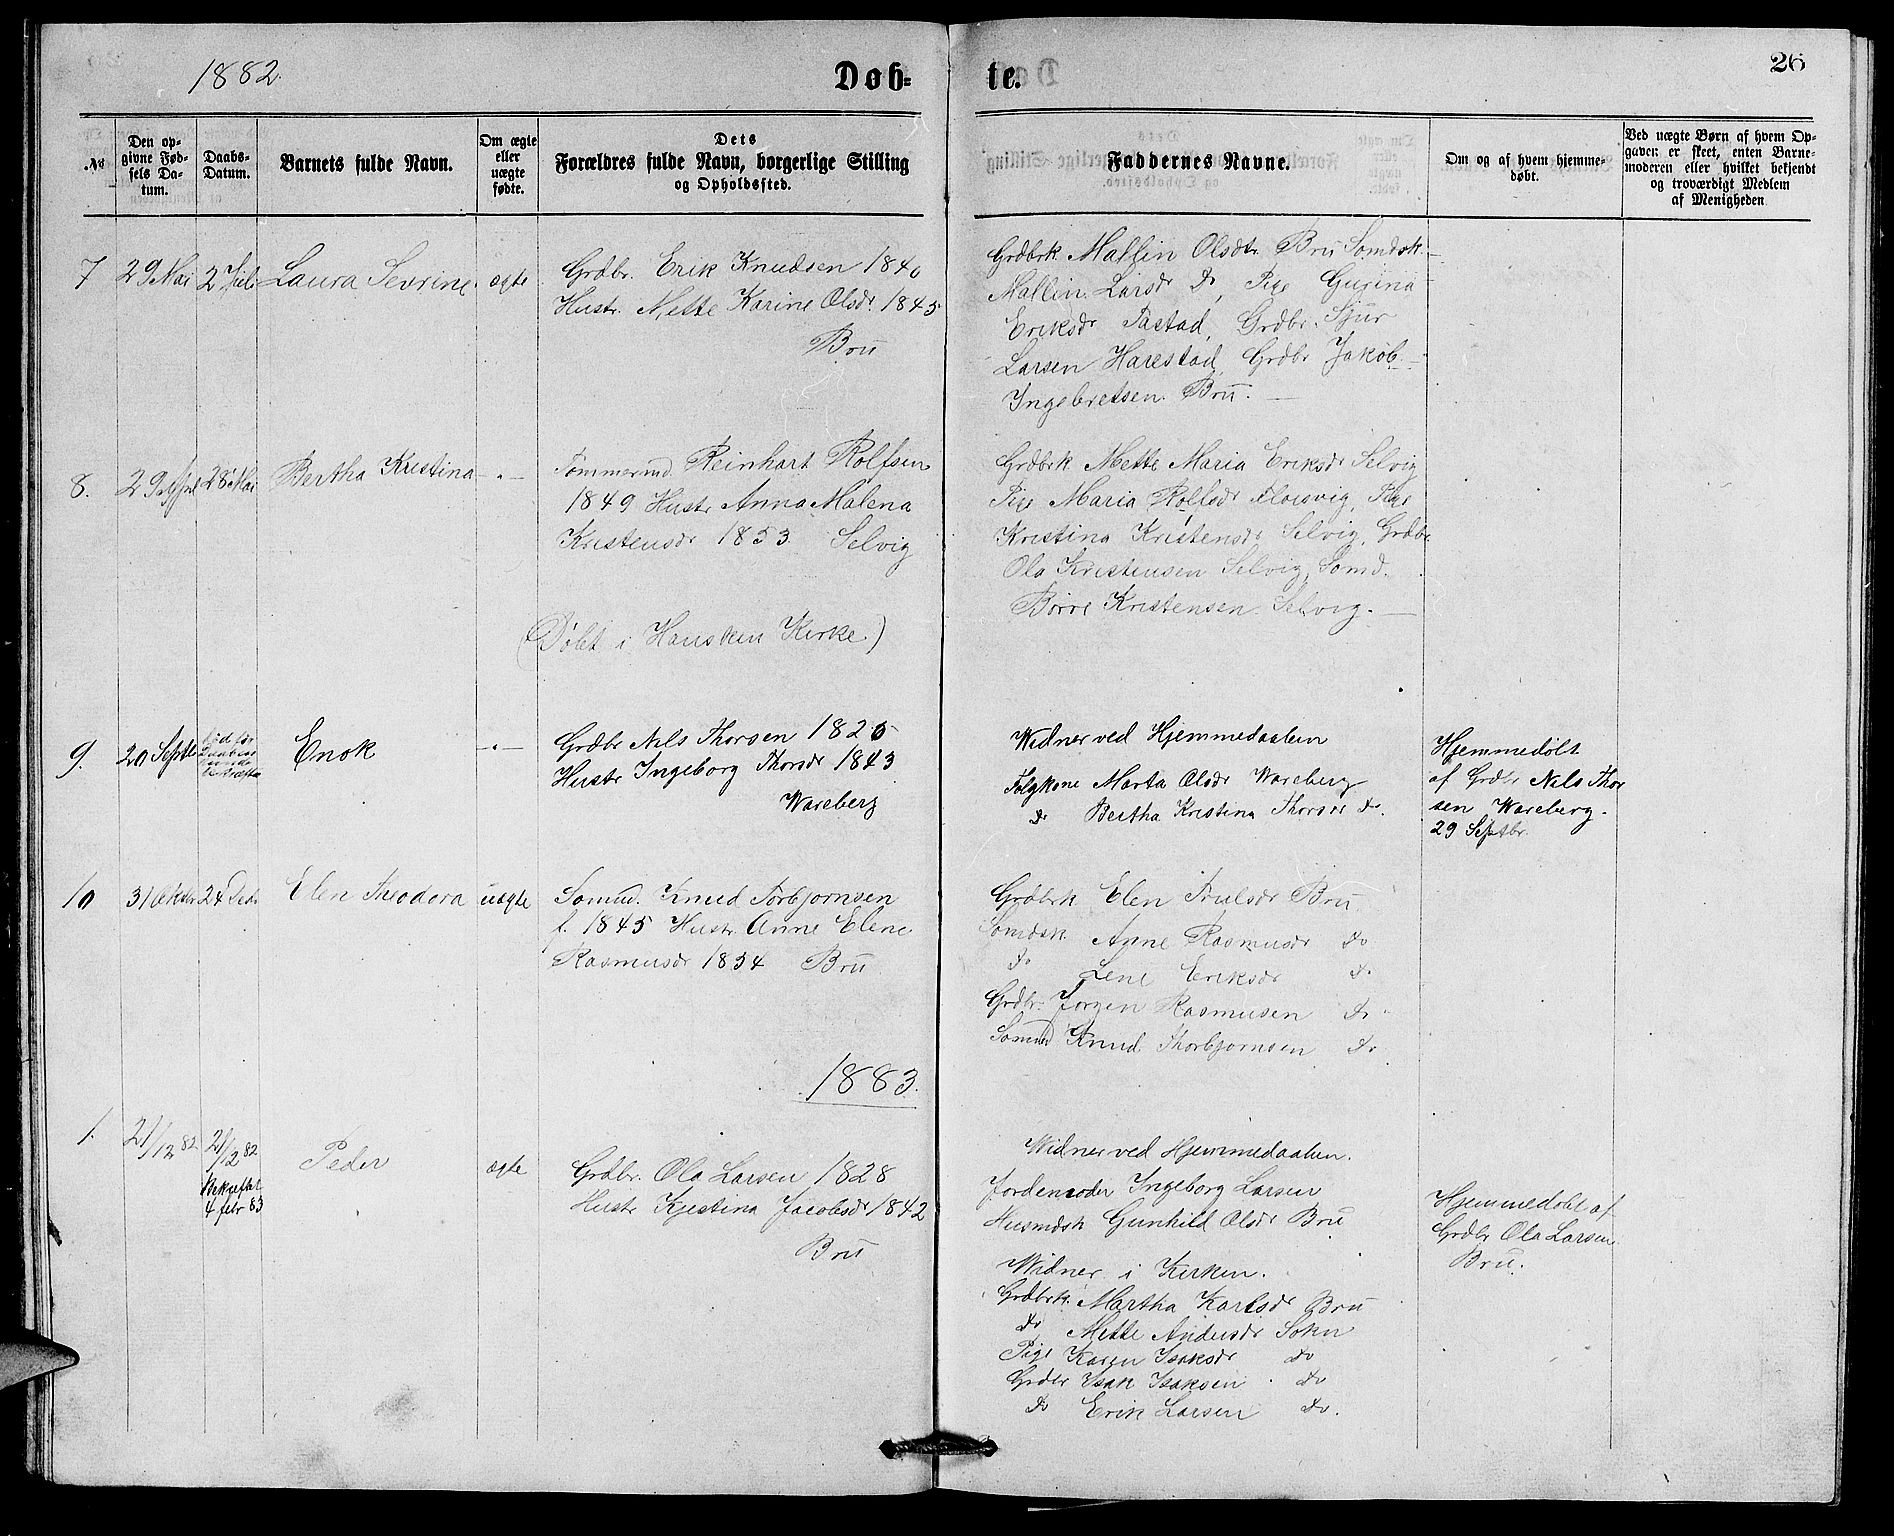 1882.
Døb-
te.
26
No
Den op-
givne Fød-
sels Da-
tum.
Daabs-
Datum.
Barnets fulde Navn.
Om ægte
eller
uægte
fødte.
Dets
Forældres fulde Navn, borgerlige Stilling
og Opholdssted.
Faddernes Navne.
Om og af hvem hjemme-
døbt.
Ved uægte Børn af hvem Op-
gaven er skeet, enten Barne-
moderen eller hvilket bekjendt
og troværdigt Medlem
af Menigheden
7
29 Mai
2 Juli
Laura Sevrine
ægte
Grdbr. Erik Knudsen 1840
Hustr. Mette Karine Olsdr. 1845
Bru
Grdbrk Mallin Olsdtr Bru Somdsk.
Mallin Larsdr Do, Pige Gurina
Eriksdr Tastad, Grdbr. Sjur
Larsen Harestad, Grdbr Jakob
Ingebretsen Bru.
8.
29 April
28 Mai
Bertha Kristina
-"-
Tømmermd. Reinhart Rolfsen
1849 Hustr Anna Malena
Kristensdr 1853 Selvig
(Døbt i Hausken Kirke.)
Grdbrk Mette Maria Eriksdr Selvig
Pige Maria Rolfsdr, Pige
Kristina Kristensdr Selvig, Grdbr
Ola Kristensen Selvig, Somd.
Børre Kristensen Selvig.
9.
20 Septbr
Enok
-"-
Grdbr Nils Thorsen 1825
Hustr Ingeborg Thorsdr 1843
Wareberg
Widner ved Hjemmedaaben
Følgkone Marta Olsdr Wareberg
do Bertha Kristina Thorsdr do.
Hjemmedøbt
af Grdbr Nils Thor
sen Wareberg.
29 Septbr.
10
31 Oktbr
24 Decbr
Elen Theodora
uægte
Somd. Knud Torbjørnsen
f. 1845 Hustr. Anne Elene
Rasmusdr 1854 Bru
Grdbrk Elen Trulsdr Bru
Somdsk Anne Rasmusdr do
do Lene Eriksdr do
Grdbr. Jørgen Rasmusen do
Somd Knud Thorbjørnsen do
1883.
1.
21/12 82
21/12 82
Bekræftet
4 febr 83
Peder
ægte
Grdbr. Ola Larsen 1828
Hustr Kjistina Jacobsdr 1842
Bru
Widner ved Hjemmedaaben.
Jordemoder Ingeborg Larsen
Husmdsk Gunhild Olsdr Bru
Widner i Kirken.
Grdbrk. Martha Karlsdr Bru
do Mette Andersdr Sokn
Pige Karen Isaksdr do
Grdbr Isak Isaksen do
do Erik Larsen do.
Hjemmedøbt af
Grdbr Ola Larsen
Bru.